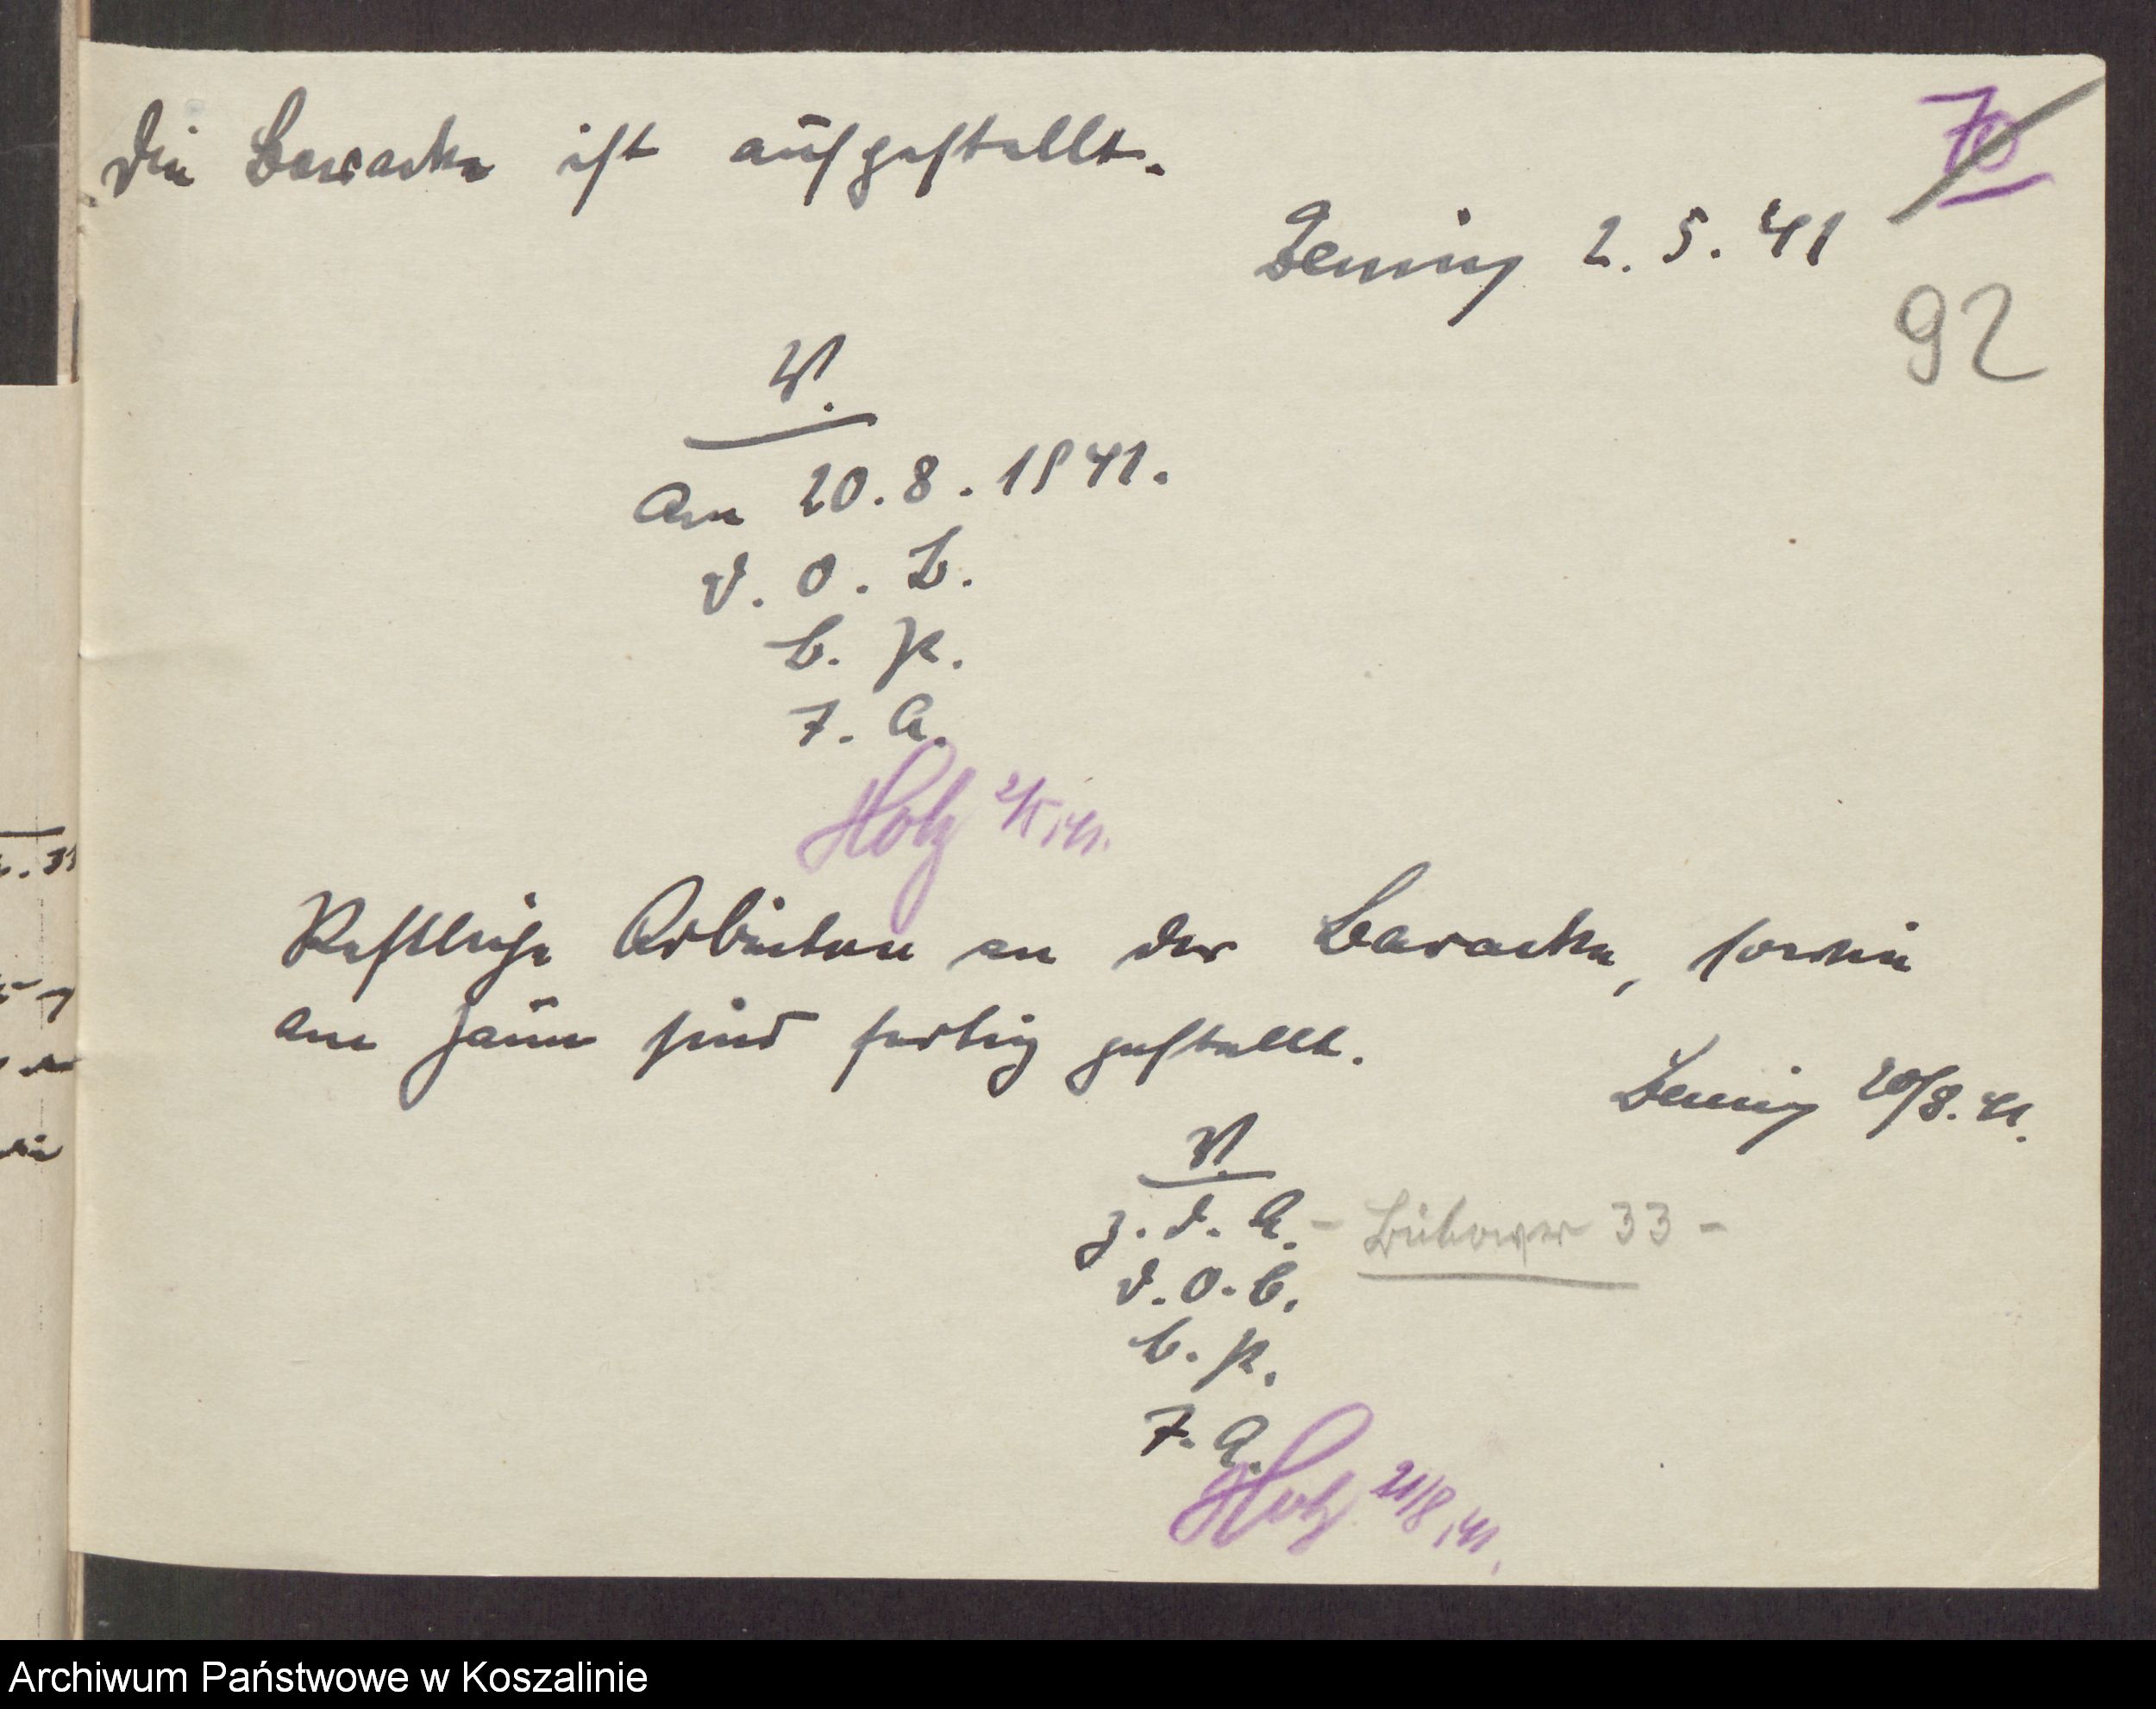 Die Baracke ist aufgestellt.
70
Dennig 2.5.41
92
V.
Am 20.8.1941.
D. O. B.
B. P.
F. A.
Holz 2/5.41.
Restliche Arbeiten an der Baracke, sowie
am Zaun sind fertig gestellt.
Dennig 20/8.41.
V.
z. d. A. - Bütower 33 -
D. O. B.
B. P.
F. A.
Holz 21/8.41.
Archiwum Państwowe w Koszalinie